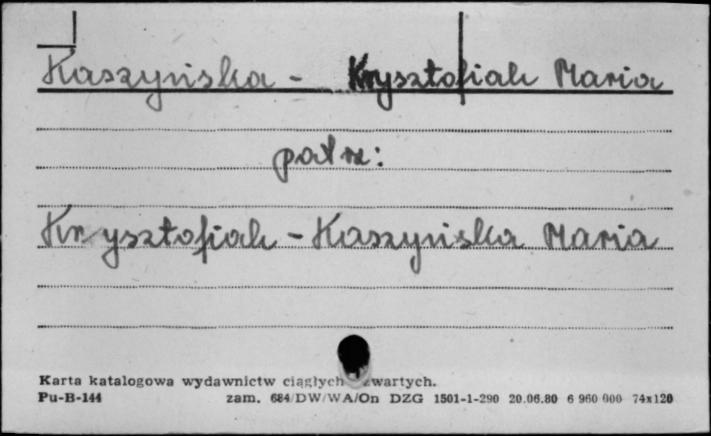 Kaszyńska - Krysztofiak Maria
patrz:
Krysztofiak - Kaszyńska Maria
Karta katalogowa wydawnictw ciągłych zwartych.
Pu-B-144 zam. 684/DW/WA/On DZG 1501-1-290 20.06.80 6 960 000 74x120